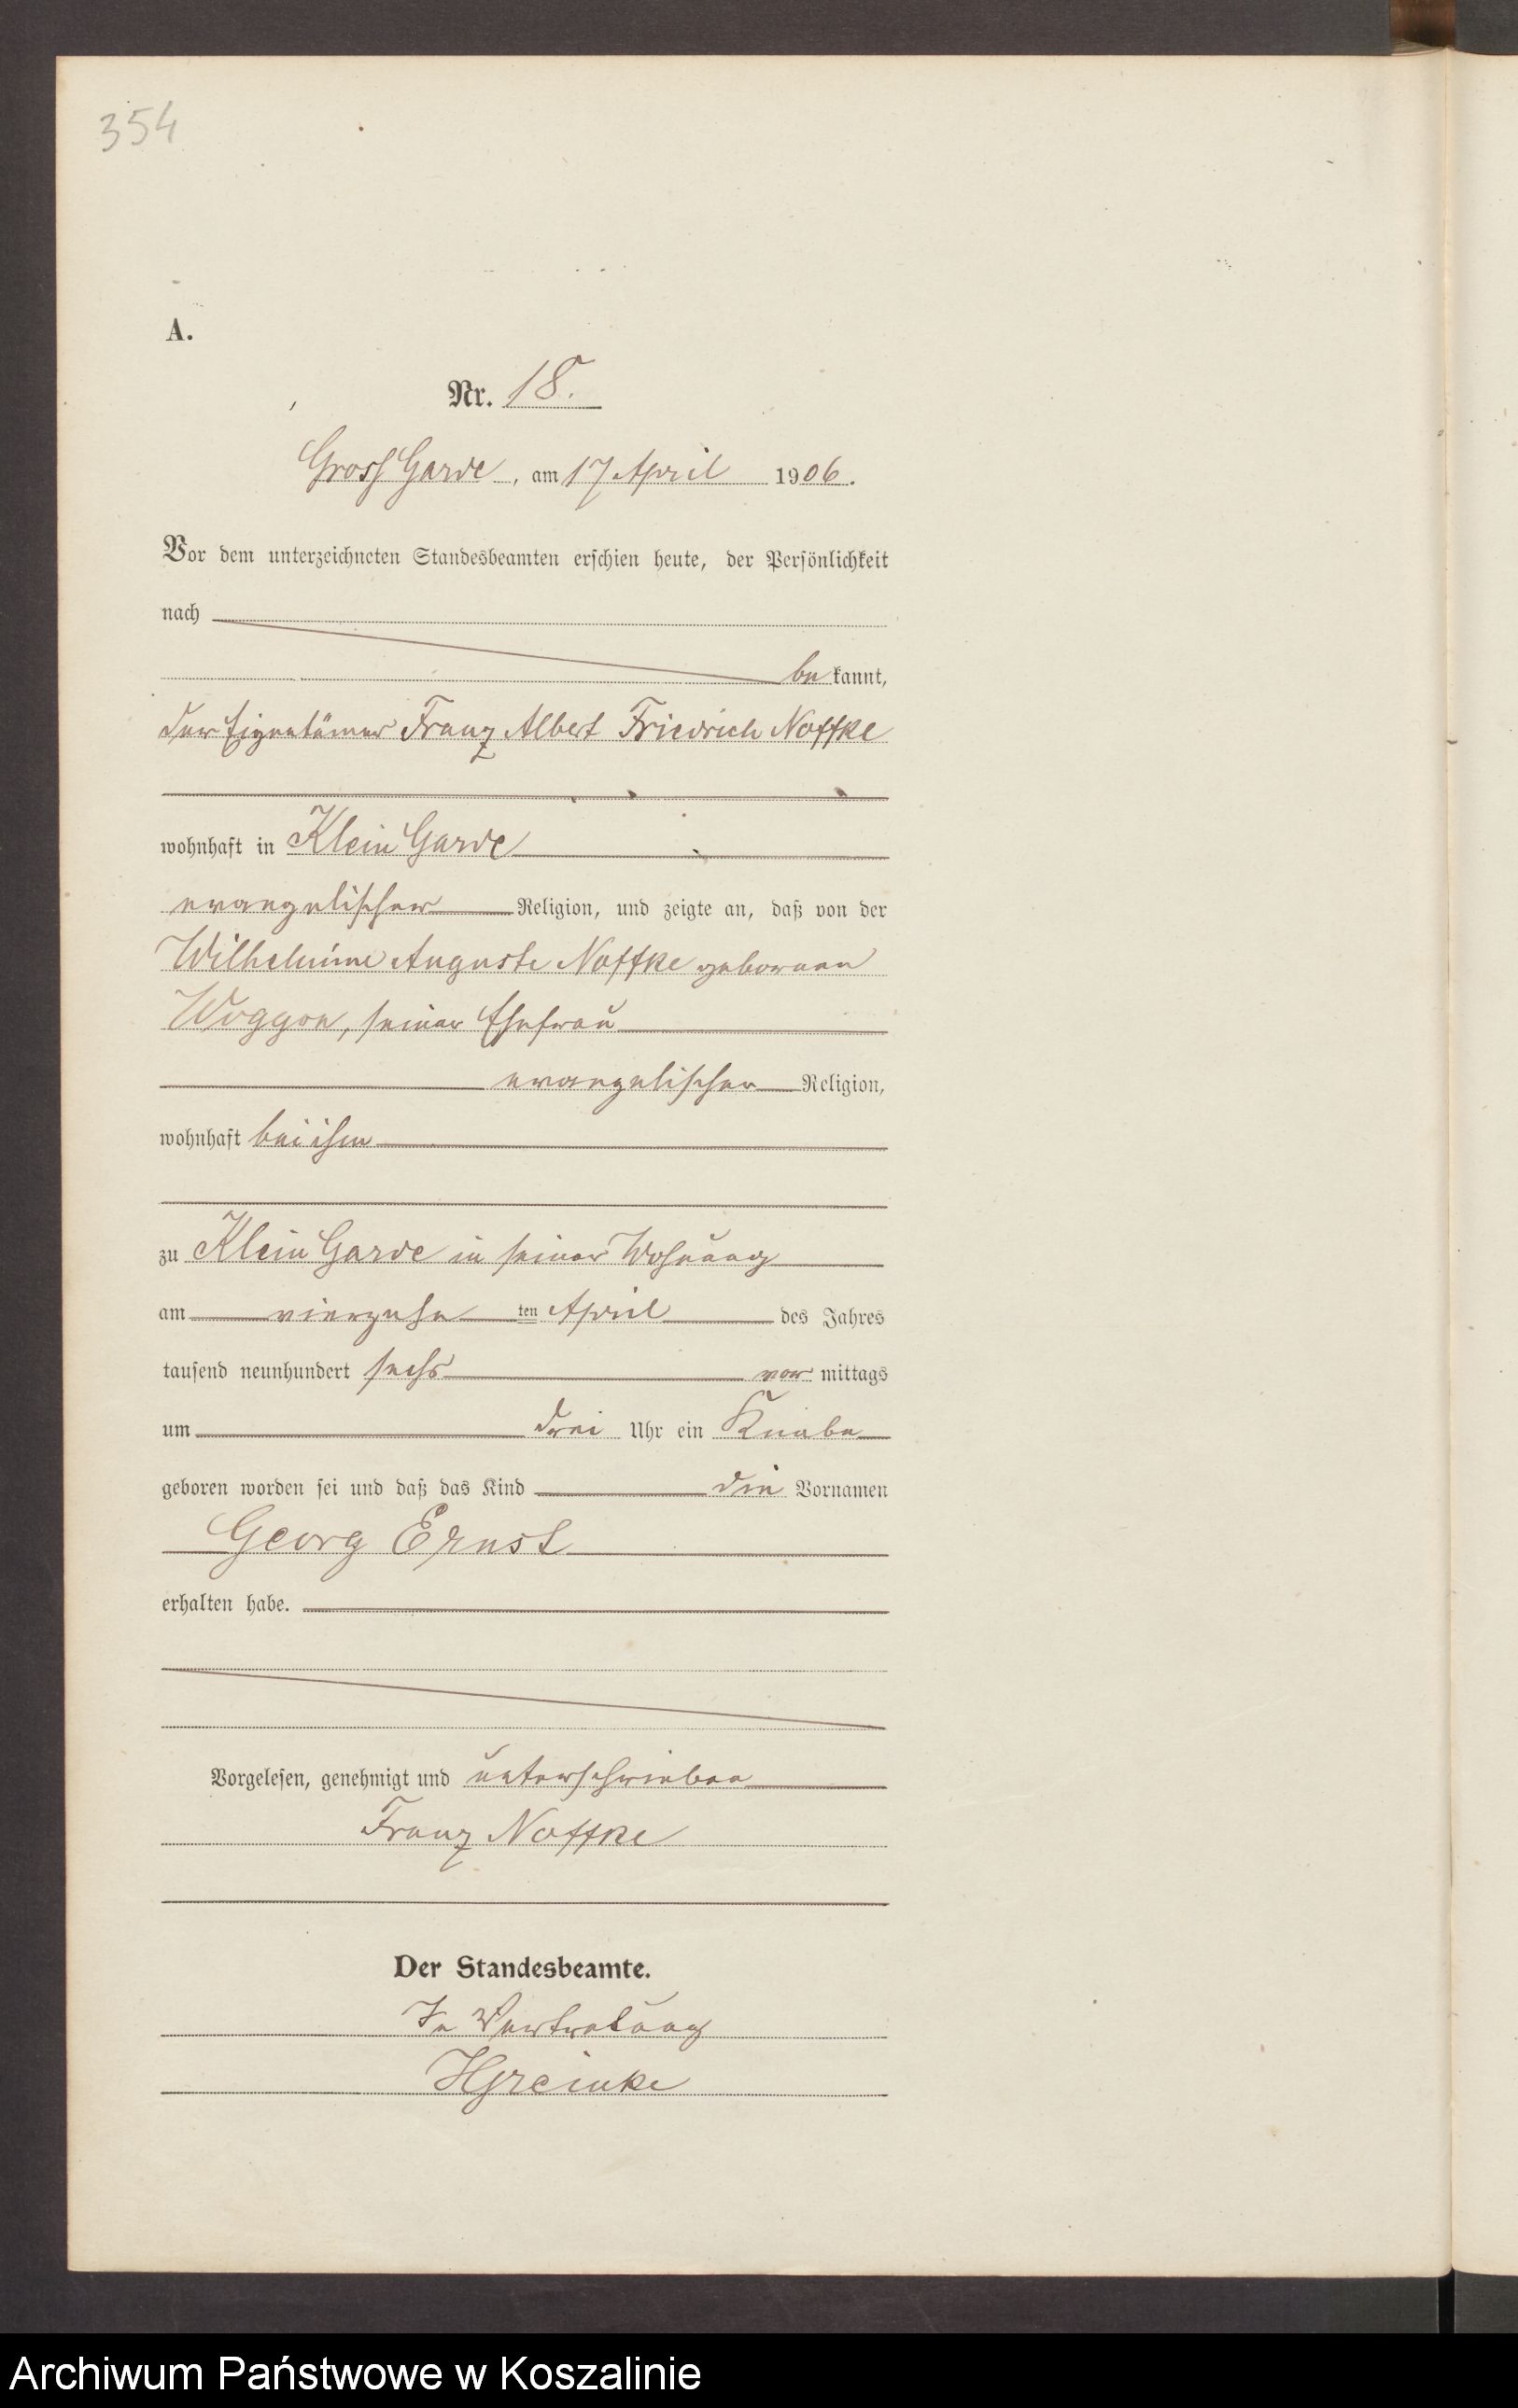 354
A.
Nr. 18.
Gross Garde, am 17 April 1906.
Vor dem unterzeichneten Standesbeamten erschien heute, der Persönlichkeit
nach
be kannt,
der Eigentümer Franz Albert Friedrich Noffke
wohnhaft in Klein Garde
evangelischer Religion, und zeigte an, daß von der
Wilhelmine Auguste Noffke geborenen
Woggon, seiner Ehefrau
evangelischer Religion,
wohnhaft bei ihm
zu Klein Garde in seiner Wohnung
am vierzehn ten April des Jahres
tausend neunhundert sechs vor mittags
um drei Uhr ein Knabe
geboren worden sei und daß das Kind die Vornamen
Georg Ernst
erhalten habe.
Vorgelesen, genehmigt und unterschrieben
Franz Noffke
Der Standesbeamte.
In Vertretung
HGreinke
Archiwum Państwowe w Koszalinie